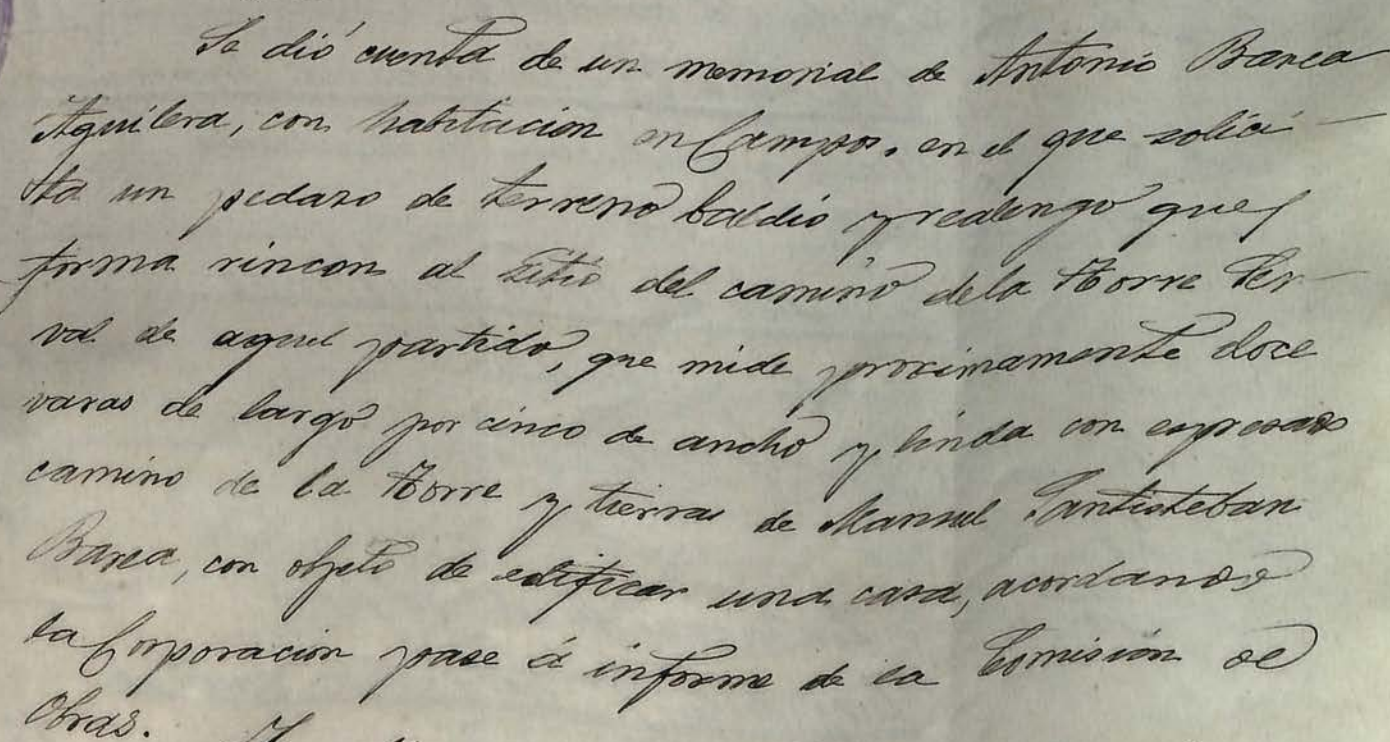 Se dió cuenta de un memorial de Antonio Barea
Aguilera, con habitacion en Campos, en el que solici-
ta un pedazo de terreno baldio y realengo que
forma rincon al sitio del camino dela Torre Ser-
val de aquel partido, que mide proximamente doce
varas de largo por cinco de ancho y linda con expresado
camino de la Torre y tierras de Manuel Santisteban
Barea, con objeto de edificar una casa, acordando
la Corporacion pase á informe de la Comisión de
Obras.